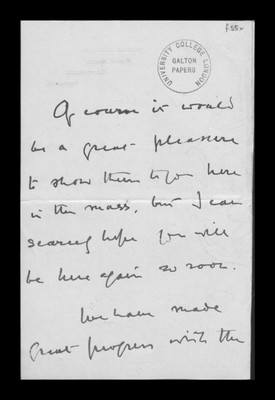 f.55r
UNIVERSITY COLLEGE LONDON
GALTON
PAPERS
Of course it would
be a great pleasure
to show them to you here
in the mass, but I can
scarcely hope you will
be here again so soon.
We have made
great progress with the